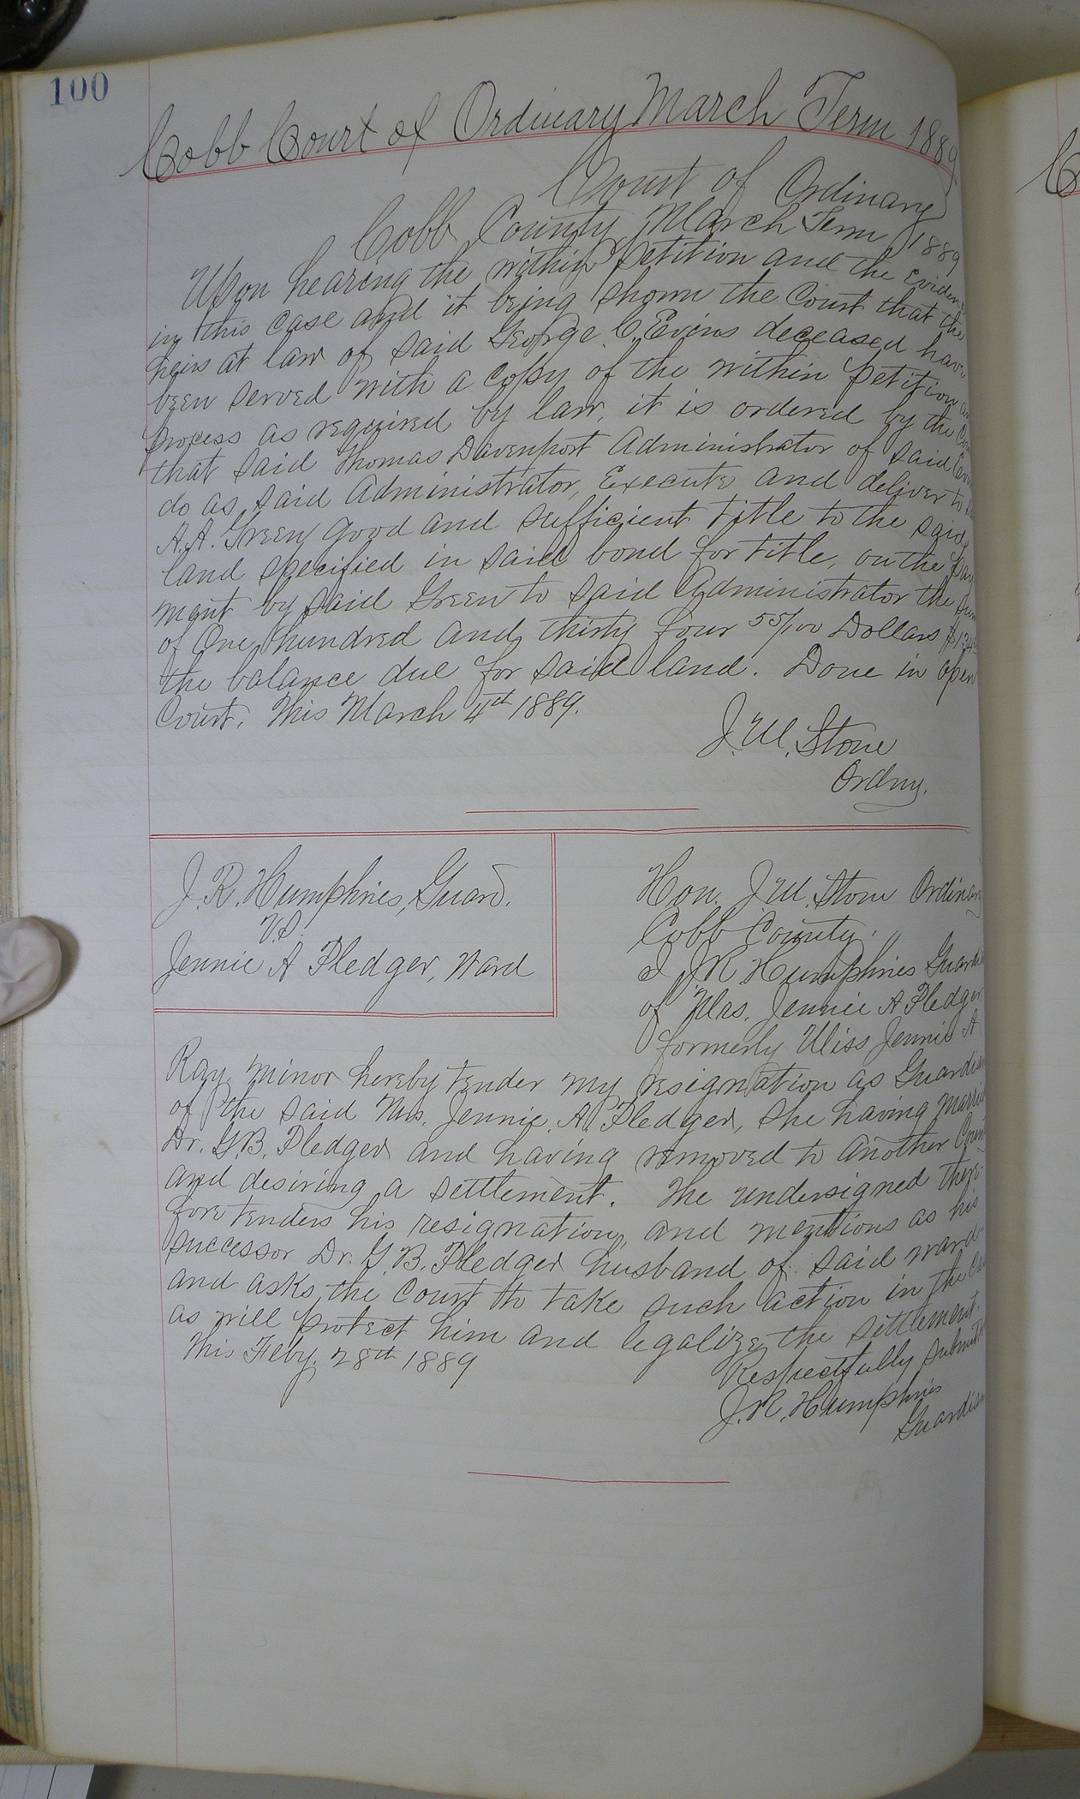 100
Cobb Court of Ordinary March Term 1889
Court of Ordinary
Cobb County March Term 1889
Upon hearing the within petition and the eviden
in this case and it being shown the Court that the
heirs at law of said George C. Evins deceased have
been served with a copy of the within petition
process as required by law, it is ordered by the
that said Thomas Davenport Administrator of said
do as said Administrator, Execute and deliver to
A.A. Green good and sufficient title to the said
land specified in said bond for title, on the pay
ment by said Green to said Administrator the sum
of One hundred and thirty four 55/100 Dollars
the balance due for said land. Done in open
Court. This March 4th 1889.
J. W. Stone
Ordny.
J. R. Humphries, Guard.
VS.
Jennie A Pledger, Ward
Hon. J. W. Stone Ordinary
Cobb County.
I J R Humphries Guardi
of Mrs. Jennie A Pledger
formerly Miss Jennie A
Ray minor hereby tender my resignation as Guardian
of the said Mrs. Jennie A. Pledger, she having married
Dr. G. B. Pledger and having removed to another Coun
and desiring a settlement. The undersigned there
fore tenders his resignation, and mentions as his
successor Dr. G. B. Pledger husband of said ward
and asks the Court to take such action in the
as will protect him and legalize the settlement.
This Feby. 28th 1889
Respectfully submit
J. R. Humphries
Guardian